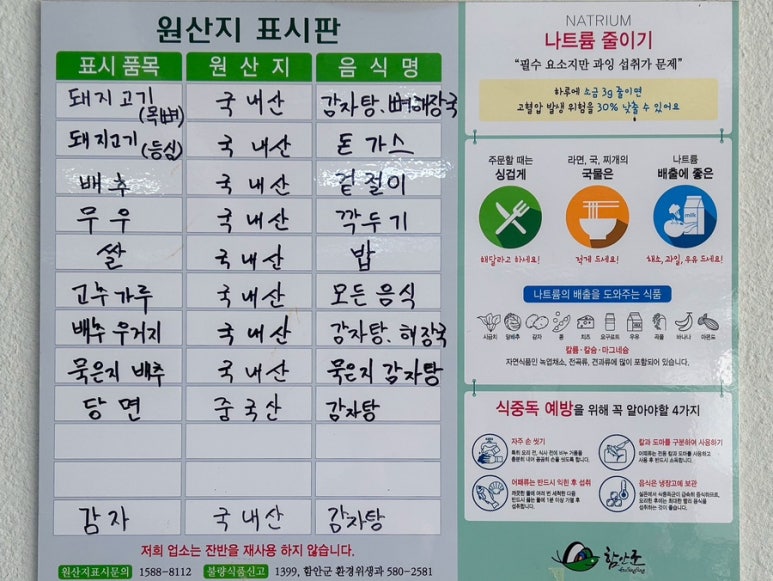 원산지 표시판
표시 품목 원 산 지 음 식 명
돼지고기(목뼈) 국내산 감자탕.뼈해장국
돼지고기(등심) 국내산 돈가스
배추 국내산 겉절이
무우 국내산 깍두기
쌀 국내산 밥
고추가루 국내산 모든음식
배추우거지 국내산 감자탕.해장국
묵은지 배추 국내산 묵은지감자탕
당면 중국산 감자탕
감자 국내산 감자탕
저희 업소는 잔반을 재사용 하지 않습니다.
원산지표시문의 1588-8112 불량식품신고 1399, 함안군 환경위생과 580-2581
NATRIUM
나트륨 줄이기
"필수 요소지만 과잉 섭취가 문제"
하루에 소금 3g 줄이면
고혈압 발생 위험을 30% 낮출 수 있어요
주문할 때는 라면, 국, 찌개의 나트륨
싱겁게 국물은 배출에 좋은
milk
해달라고 하세요! 적게 드세요! 채소, 과일, 우유 드세요!
나트륨의 배출을 도와주는 식품
시금치 양배추 감자 콩 치즈 요구르트 우유 곡물 바나나 아몬드
칼륨·칼슘·마그네슘
자연식품인 녹업채소, 전곡류, 견과류에 많이 포함되어 있습니다.
식중독 예방을 위해 꼭 알아야할 4가지
자주 손 씻기
칼과 도마를 구분하여 사용하기
어패류는 반드시 익힌 후 섭취
음식은 냉장고에 보관
함안군